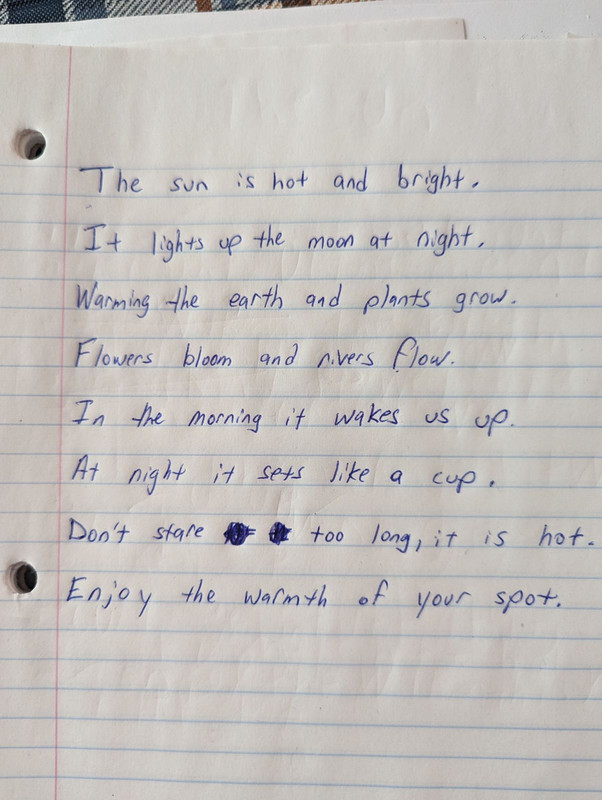 The sun is hot and bright.
It lights up the moon at night.
Warming the earth and plants grow.
Flowers bloom and rivers flow.
In the morning it wakes us up.
At night it sets like a cup.
Don't stare too long, it is hot.
Enjoy the warmth of your spot.